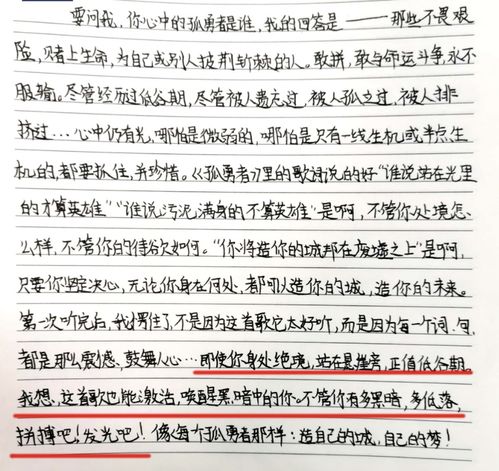 要问我，你心中的孤勇者是谁，我的回答是——那些不畏艰
险，赌上生命，为自己或别人披荆斩棘的人。敢拼，敢与命运斗争，永不
服输。尽管经历过低谷期，尽管被人遗忘过，被人孤立过，被人排
挤过…心中仍有光，哪怕是微弱的，哪怕是只有一线生机或半点生
机的，都要抓住，并珍惜。《孤勇者》里的歌词说的好“谁说站在光里
的才算英雄”“谁说污泥满身的不算英雄”是啊，不管你处境怎
么样，不管你的待欲如何。“你将造你的城邦在废墟之上”是啊，
只要你坚定决心，无论你身在何处，都可以造你的城，造你的未来。
第一次听完后，我愣住了，不是因为这首歌它太好听，而是因为每一个词、句
都是那么震憾、鼓舞人心…即使你身处绝境，站在悬撞旁，正值低谷期。
我想，这首歌也能激活，唤醒黑暗中的你。不管你有多黑暗，多低落，
拼搏吧！发光吧！像每个孤勇者那样：造自己的城，自己的梦！